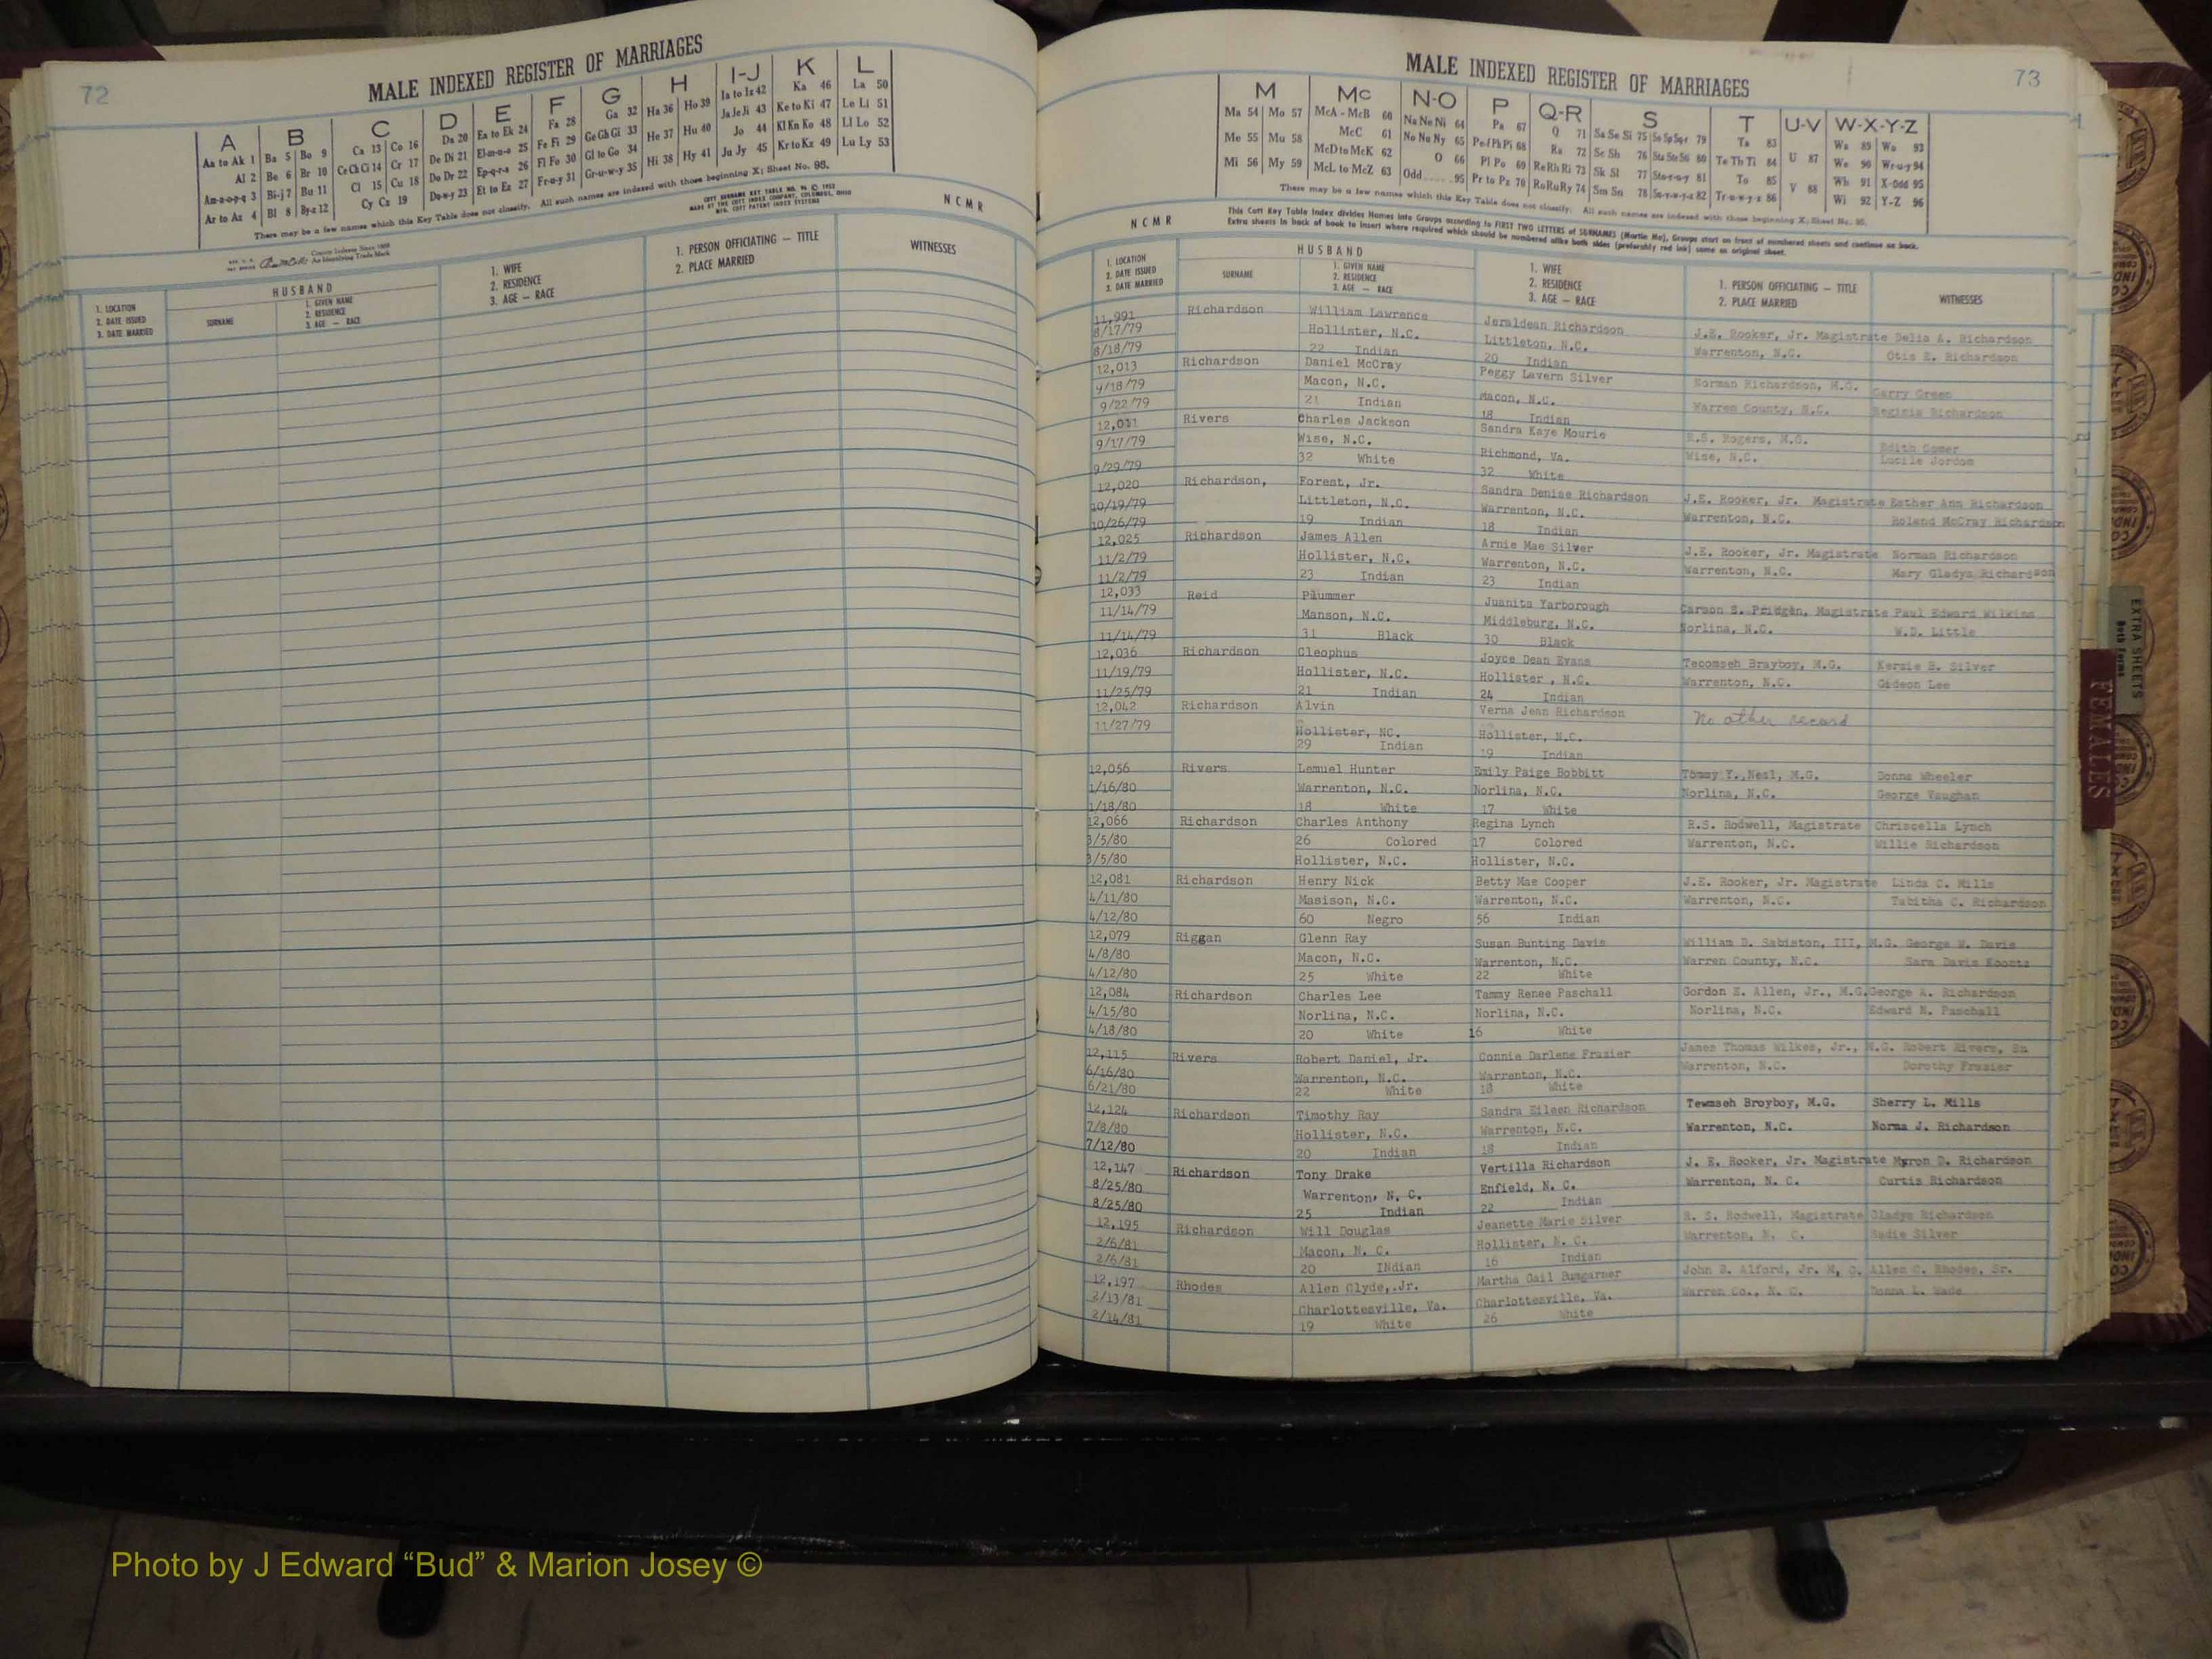 72
MALE INDEXED REGISTER OF MARRIAGES
A B C D E F G H I-J K L
Aa to Ak 1 Ba 5 Bo 9 Ca 13 Co 16 Da 20 Ea to Ek 24 Fa 28 Ga 32 Ha 36 Ho 39 Ia to Iz 42 Ka 46 La 50
Al 2 Be 6 Br 10 Ce Ch Ci 14 Cr 17 De Di 21 El-m-n-o 25 Fe Fi 29 Ge Gh Gi 33 He 37 Hu 40 Ja Je Ji 43 Ke to Ki 47 Le Li 51
Am-n-o-p-q 3 Bi-j 7 Bu 11 Cl 15 Cu 18 Do Dr 22 Ep-q-r-s 26 Fl Fo 30 Gl to Go 34 Hi 38 Hy 41 Jo 44 Kl Kn Ko 48 Ll Lo 52
Ar to Az 4 Bl 8 By-z 12 Cy Cz 19 Du-w-y 23 Et to Ez 27 Fr-u-y 31 Gr-u-w-y 35 Ju Jy 45 Kr to Kz 49 Lu Ly 53
There may be a few names which this Key Table does not classify. All such names are indexed with those beginning X; Sheet No. 95.
NCMR
1. LOCATION
2. DATE ISSUED
3. DATE MARRIED
HUSBAND
SURNAME
1. GIVEN NAME
2. RESIDENCE
3. AGE — RACE
1. WIFE
2. RESIDENCE
3. AGE — RACE
1. PERSON OFFICIATING — TITLE
2. PLACE MARRIED
WITNESSES
73
MALE INDEXED REGISTER OF MARRIAGES
M Mc N-O P Q-R S T U-V W-X-Y-Z
Ma 54 Mo 57 McA - McB 60 Na Ne Ni 64 Pa 67 Q 71 Sa Se Si 75 So Sp Sq-r 79 Ta 83 U 87 Wa 89 Wo 93
Me 55 Mu 58 McC 61 No Nu Ny 65 Pe-f Ph Pi 68 Ra 72 Sc Sh 76 Sta Ste Sti 80 Te Th Ti 84 V 88 We 90 Wr-u-y 94
Mi 56 My 59 McD to McK 62 O 66 Pl Po 69 Re Rh Ri 73 Sk Sl 77 Sto-r-u-y 81 To 85 Wh 91 X-Odd 95
McL to McZ 63 Odd 95 Pr to Pz 70 Ro Ru Ry 74 Sm Sn 78 Su-v-w-y-z 82 Tr-u-w-y-z 86 Wi 92 Y-Z 96
There may be a few names which this Key Table does not classify. All such names are indexed with those beginning X; Sheet No. 95.
This Cott Key Table Index divides Names into Groups according to FIRST TWO LETTERS of SURNAMES (Martin Ma), Groups start on front of numbered sheets and continue on back.
Extra sheets in back of book to insert where required which should be numbered alike both sides (preferably red ink) same as original sheet.
NCMR
1. LOCATION
2. DATE ISSUED
3. DATE MARRIED
HUSBAND
SURNAME
1. GIVEN NAME
2. RESIDENCE
3. AGE — RACE
1. WIFE
2. RESIDENCE
3. AGE — RACE
1. PERSON OFFICIATING — TITLE
2. PLACE MARRIED
WITNESSES
11,991 Richardson William Lawrence Jeraldean Richardson J.E. Rooker, Jr. Magistrate Delia A. Richardson
8/17/79 Hollister, N.C. Littleton, N.C. Warrenton, N.C. Otis E. Richardson
8/18/79 22 Indian 20 Indian
12,013 Richardson Daniel McCray Peggy Lavern Silver Norman Richardson, M.G. Garry Green
9/18/79 Macon, N.C. Macon, N.C. Warren County, N.C. Reginia Richardson
9/22/79 21 Indian 18 Indian
12,011 Rivers Charles Jackson Sandra Kaye Mourie R.S. Rogers, M.G. Edith Comer
9/17/79 Wise, N.C. Richmond, Va. Wise, N.C. Lucile Jordon
9/29/79 32 White 32 White
12,020 Richardson, Forest, Jr. Sandra Denise Richardson J.E. Rooker, Jr. Magistrate Esther Ann Richardson
10/19/79 Littleton, N.C. Warrenton, N.C. Warrenton, N.C. Roland McCray Richardson
10/26/79 19 Indian 18 Indian
12,025 Richardson James Allen Arnie Mae Silver J.E. Rooker, Jr. Magistrate Norman Richardson
11/2/79 Hollister, N.C. Warrenton, N.C. Warrenton, N.C. Mary Gladys Richardson
11/2/79 23 Indian 23 Indian
12,033 Reid Plummer Juanita Yarborough Carson S. Pridgen, Magistrate Paul Edward Wilkins
11/14/79 Manson, N.C. Middleburg, N.C. Norlina, N.C. W.D. Little
11/14/79 31 Black 30 Black
12,036 Richardson Cleophus Joyce Dean Evans Tecomseh Brayboy, M.G. Kersie B. Silver
11/19/79 Hollister, N.C. Hollister , N.C. Warrenton, N.C. Gideon Lee
11/25/79 21 Indian 24 Indian
12,042 Richardson Alvin Verna Jean Richardson No other record
11/27/79 Hollister, NC. Hollister, N.C.
29 Indian 19 Indian
12,056 Rivers Lemuel Hunter Emily Paige Bobbitt Tommy Y. Neal, M.G. Donna Wheeler
1/16/80 Warrenton, N.C. Norlina, N.C. Norlina, N.C. George Vaughan
1/18/80 18 White 17 White
12,066 Richardson Charles Anthony Regina Lynch R.S. Rodwell, Magistrate Chriscella Lynch
3/5/80 26 Colored 17 Colored Warrenton, N.C. Willie Richardson
3/5/80 Hollister, N.C. Hollister, N.C.
12,081 Richardson Henry Nick Betty Mae Cooper J.E. Rooker, Jr. Magistrate Linda C. Mills
4/11/80 Masison, N.C. Warrenton, N.C. Warrenton, N.C. Tabitha C. Richardson
4/12/80 60 Negro 56 Indian
12,079 Riggan Glenn Ray Susan Bunting Davis William D. Sabiston, III, M.G. George W. Davis
4/8/80 Macon, N.C. Warrenton, N.C. Warren County, N.C. Sara Davis Koontz
4/12/80 25 White 22 White
12,084 Richardson Charles Lee Tammy Renee Paschall Gordon E. Allen, Jr., M.G. George A. Richardson
4/15/80 Norlina, N.C. Norlina, N.C. Norlina, N.C. Edward N. Paschall
4/18/80 20 White 16 White
12,115 Rivers Robert Daniel, Jr. Connie Darlene Frazier James Thomas Wilkes, Jr., M.G. Robert Rivers, Sr
6/16/80 Warrenton, N.C. Warrenton, N.C. Warrenton, N.C. Dorothy Frazier
6/21/80 22 White 18 White
12,124 Richardson Timothy Ray Sandra Eileen Richardson Tewmseh Broyboy, M.G. Sherry L. Mills
7/8/80 Hollister, N.C. Warrenton, N.C. Warrenton, N.C. Norma J. Richardson
7/12/80 20 Indian 18 Indian
12,147 Richardson Tony Drake Vertilla Richardson J. E. Rooker, Jr. Magistrate Myron D. Richardson
8/25/80 Warrenton, N. C. Enfield, N. C. Warrenton, N. C. Curtis Richardson
8/25/80 25 Indian 22 Indian
12,195 Richardson Will Douglas Jeanette Marie Silver R. S. Rodwell, Magistrate Gladys Richardson
2/6/81 Macon, N. C. Hollister, N. C. Warrenton, N. C. Sadie Silver
2/6/81 20 INdian 16 Indian
12,197 Rhodes Allen Clyde, Jr. Martha Gail Bumgarner John B. Alford, Jr. M. G. Allen C. Rhodes, Sr.
2/13/81 Charlottesville, Va. Charlottesville, Va. Warren Co., N. C. Donna L. Wade
2/14/81 19 White 26 White
EXTRA SHEETS
FEMALES
Photo by J Edward “Bud” & Marion Josey ©